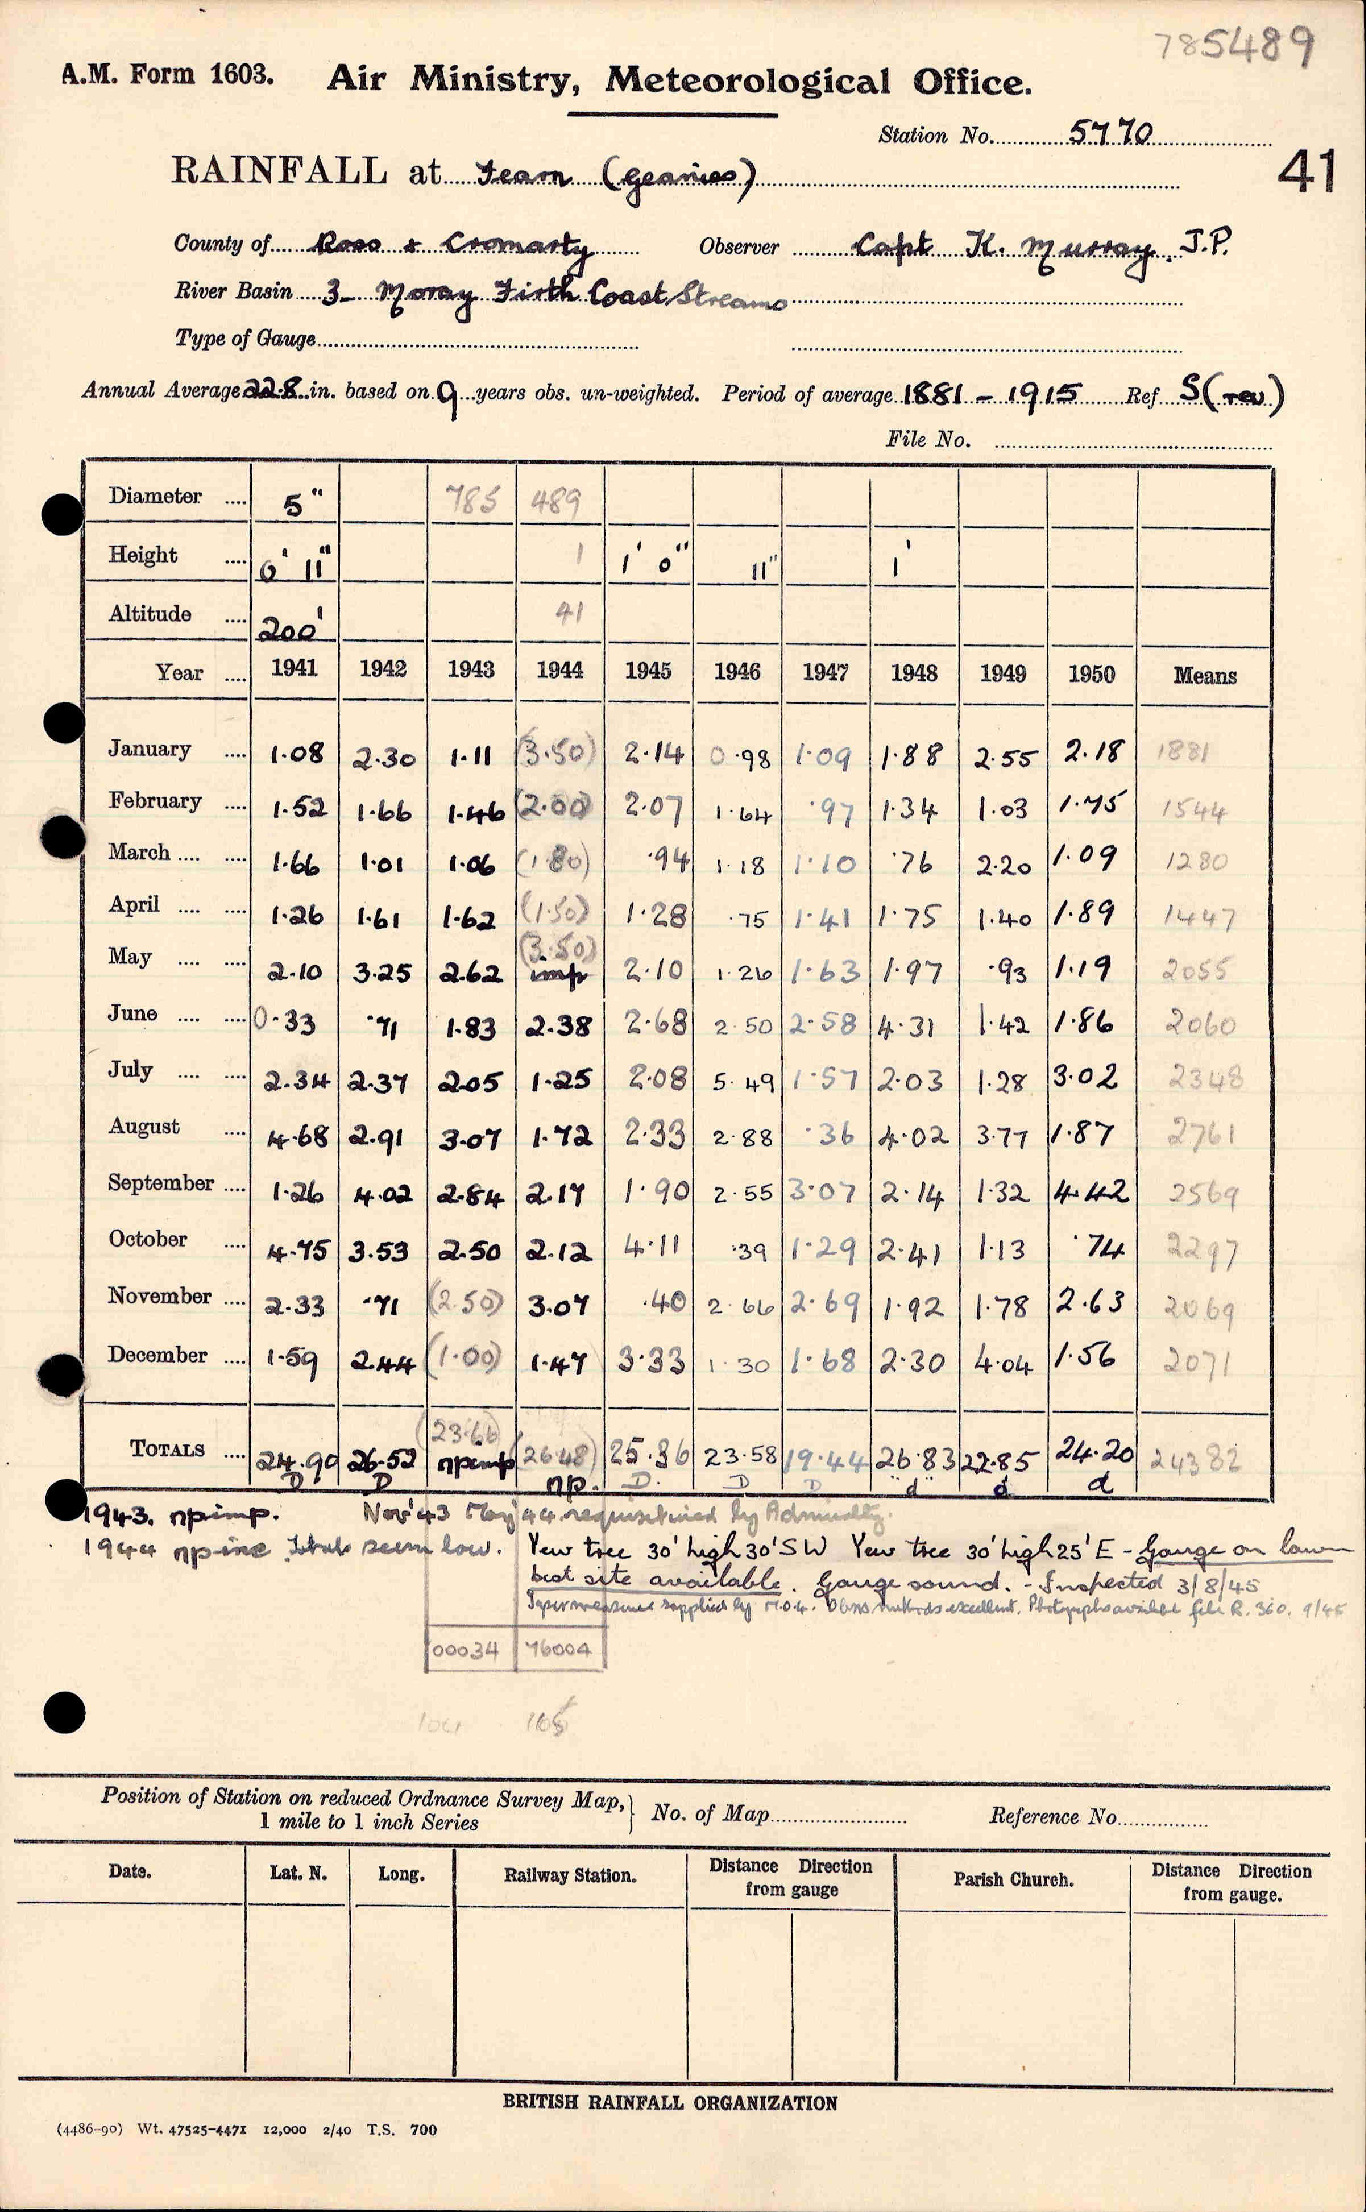 785489
A.M. Form 1603. Air Ministry, Meteorological Office.
Station No. 5770
41
RAINFALL at Fearn (Geanies)
County of Ross & Cromarty Observer Capt K. Murray, J.P.
River Basin 3 - Moray Firth Coast Streams
Type of Gauge
Annual Average 22.8 in. based on 9 years obs. un-weighted. Period of average 1881 - 1915 Ref S (rev)
File No.
Diameter .... 5" 785 489
Height .... 0' 11" 1 1' 0" 11" 1'
Altitude .... 200' 41
Year .... 1941 1942 1943 1944 1945 1946 1947 1948 1949 1950 Means
January .... 1.08 2.30 1.11 (3.50) 2.14 0.98 1.09 1.88 2.55 2.18 1881
February .... 1.52 1.66 1.46 (2.00) 2.07 1.64 .97 1.34 1.03 1.75 1544
March .... .... 1.66 1.01 1.06 (1.80) .94 1.18 1.10 .76 2.20 1.09 1280
April .... .... 1.26 1.61 1.62 (1.50) 1.28 .75 1.41 1.75 1.40 1.89 1447
(3.50)
May .... .... 2.10 3.25 2.62 imp 2.10 1.26 1.63 1.97 .93 1.19 2055
June .... .... 0.33 .71 1.83 2.38 2.68 2.50 2.58 4.31 1.42 1.86 2060
July .... .... 2.34 2.37 2.05 1.25 2.08 5.49 1.57 2.03 1.28 3.02 2348
August .... 4.68 2.91 3.07 1.72 2.33 2.88 .36 4.02 3.77 1.87 2761
September .... 1.26 4.02 2.84 2.17 1.90 2.55 3.07 2.14 1.32 4.42 2569
October .... 4.75 3.53 2.50 2.12 4.11 .39 1.29 2.41 1.13 .74 2297
November .... 2.33 .71 (2.50) 3.07 .40 2.66 2.69 1.92 1.78 2.63 2069
December .... 1.59 2.44 (1.00) 1.47 3.33 1.30 1.68 2.30 4.04 1.56 2071
(23.66)
TOTALS .... 24.90 26.52 npimp (26.48) 25.36 23.58 19.44 26.83 22.85 24.20 24382
D D np. D. D D "d" d d
1943. npimp. Nov '43 May '44 requisitioned by Admiralty.
1944 np inc Totals seem low. Yew tree 30' high 30' SW Yew tree 30' high 25' E - Gauge on lawn
best site available. Gauge sound. - Inspected 3/8/45
supplied by M.O. Obs methods excellent. Photographs available file R. 360. 9/45
00034 76004
105
Position of Station on reduced Ordnance Survey Map, No. of Map Reference No.
1 mile to 1 inch Series
Date. Lat. N. Long. Railway Station. Distance Direction from gauge Parish Church. Distance Direction from gauge.
BRITISH RAINFALL ORGANIZATION
(4486-90) Wt. 47525-4471 12,000 2/40 T.S. 700